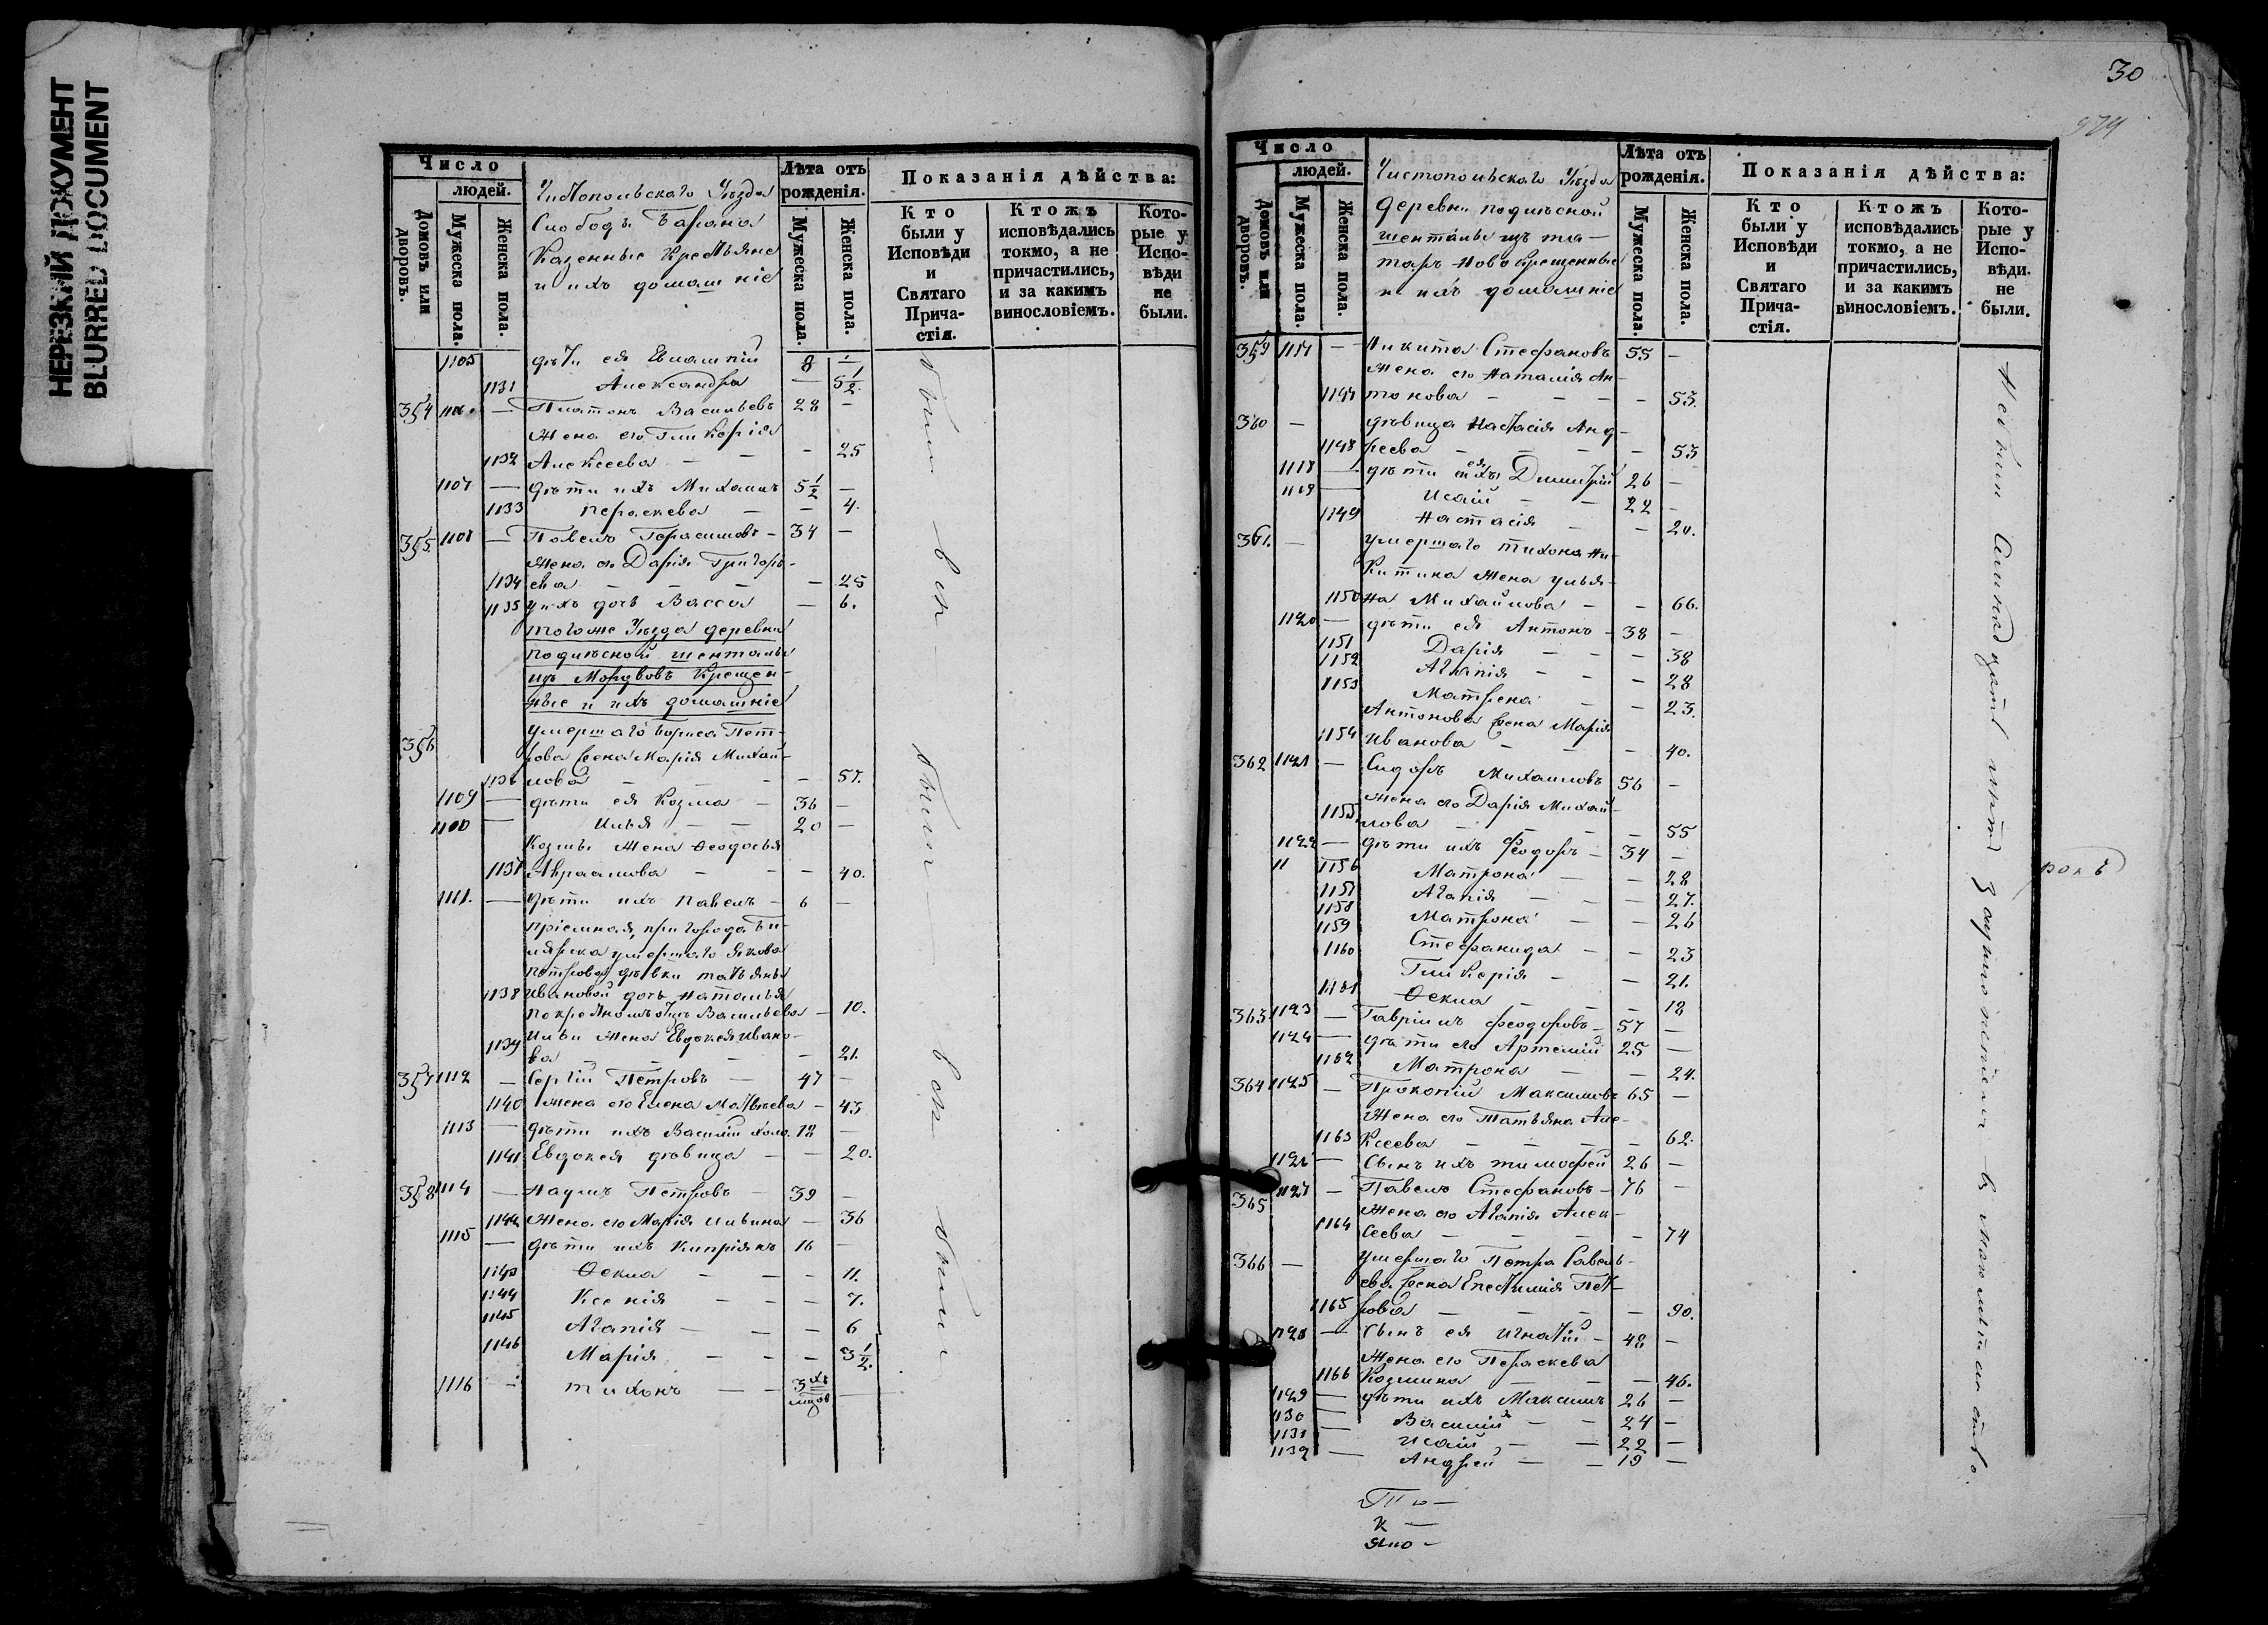 НЕРЕЗКИЙ ДОКУМЕНТ
BLURRED DOCUMENT
Число
людей.
Домовъ или дворовъ.
Мужеска пола.
Женска пола.
Чистопольскаго Уѣзда
Слободъ Барана
Казенные Крестьяне
и ихъ домашніе
Лѣта отъ рожденія.
Мужеска пола.
Женска пола.
Показанія дѣйства:
Кто были у Исповѣди и Святаго Причастія.
Ктожъ исповѣдались токмо, а не причастились, и за какимъ винословіемъ.
Которые у Исповѣди не были.
1105 дѣти ея Евлампій 8 —
1131 Александра — 5 1/2.
354 1106 — Платонъ Васильевъ 28 —
Жена его Гликерія
1132 Алексеева — — — 25
1107 — дѣти ихъ Михаилъ 5 1/2 —
1133 Параскева — — 4.
355. 1108 — Павелъ Герасимовъ — 34 —
Жена его Дарія Григорь-
1134 ева — — — — 25
1135 у нихъ дочь Васса — 6.
тогоже Уѣзда деревни
подлѣсной шенталы
изъ Мордвовъ Крещен-
ные и ихъ домашніе
356 умершаго Бориса Пет-
рова жена Марія Михай-
1136 лова — — — — 57.
1109 — дѣти ея Козма — 36 —
1100 — Илья — — 20 —
Козмы Жена Ѳеодосья
1137 Авраамова — — — 40.
1111. — дѣти ихъ Павелъ — 6 —
пріемная, пригорода Би-
лярска умершаго Якова
Петрова дѣвки татьяны
1138 Ивановой дочь Наталья
по крестномъ отцѣ Васильева — 10.
Ильи Жена Евдокея Ивано-
1139 ва — — — — 21.
357 1112 — Сергій Петровъ — 47 —
1140 Жена его Елена Матвѣева — 43
1113 — дѣти ихъ Василій холо. 18 —
1141 Евдокея дѣвица — — 20.
358 1114 — Наумъ Петровъ — 39 —
1142 Жена его Марія Ильина — 36
1115 — дѣти ихъ Кипріянъ 16 —
1143 Ѳекла — — — 11.
1144 Ксенія — — — 7.
1145 Агапія — — — 6
1146 Марія — — — 3 1/2.
1116 — тихонъ — — 3хъ мцов —
были вси были вси были
30
979
Число
людей.
Домовъ или дворовъ.
Мужеска пола.
Женска пола.
Чистопольскаго Уѣзда
деревни подлѣсной
шенталы изъ та-
таръ новокрещенные
и ихъ домашніе
Лѣта отъ рожденія.
Мужеска пола.
Женска пола.
Показанія дѣйства:
Кто были у Исповѣди и Святаго Причастія.
Ктожъ исповѣдались токмо, а не причастились, и за какимъ винословіемъ.
Которые у Исповѣди. не были.
359 1117 — — Никита Стефановъ 55 —
Жена его Наталія Ан-
1147 тонова — — — — 53.
360 — дѣвица Настасія Анд-
1148 реева — — — — 53
1118 — дѣти ея Димитрій 26 —
1119 — Исаій — — 22 —
1149 Настасія — — 20.
361. — умершаго тихона Ни-
китина Жена улья-
1150 на Михайлова — — 66.
1120 — дѣти ея Антонъ — 38 —
1151 Дарія — — — 38
1152 Агапія — — — 28
1153 Матрена — — 23.
Антонова жена Марія
1154 Иванова — — — 40.
362 1121 — Сидоръ Михаиловъ 56 —
Жена его Дарія Михай-
1155 лова — — — — 55
1122 — дѣти ихъ Феодоръ — 34 —
11 1156 Матрона — — 28
1157 Агапія — — — 27.
1158 Матрона — — 26
1159 Стефанида — — 23
1160 Гликерія — — 21.
1161 Ѳекла — — 18
363 1123 — Гавріилъ Феодоровъ — 57 —
1124 — дѣти его Артемій 25 —
1162 Матрона — — 24.
364 1125 — Прокопій Максимовъ 65 —
Жена его Татьяна Але-
1163 ксеева — — — — 62.
1126 — Сынъ ихъ тимофей 26 —
365 1127 — Павелъ Стефановъ — 76 —
Жена его Агапія Алек-
1164 сеева — — — — 74
366 — умершаго Петра Савель-
ева жена Епестимія Пет-
1165 рова — — — — 90.
1128 — Сынъ ея Игнатій — 48 —
Жена его Параскева
1166 Козмина — — — 46.
1129 — дѣти ихъ Максимъ 26 —
1130 — Василій — — 24 —
1131 — Исаій — — 22 —
1132 — Андрей — — 19 —